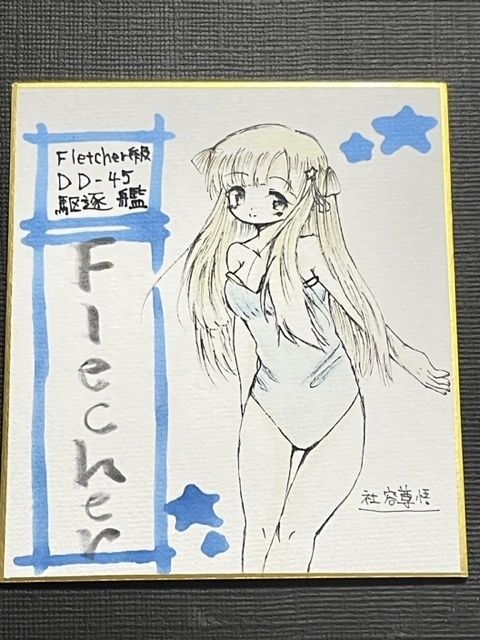 Fletcher級
DD-45
駆逐艦
Flecher
社容尊悟